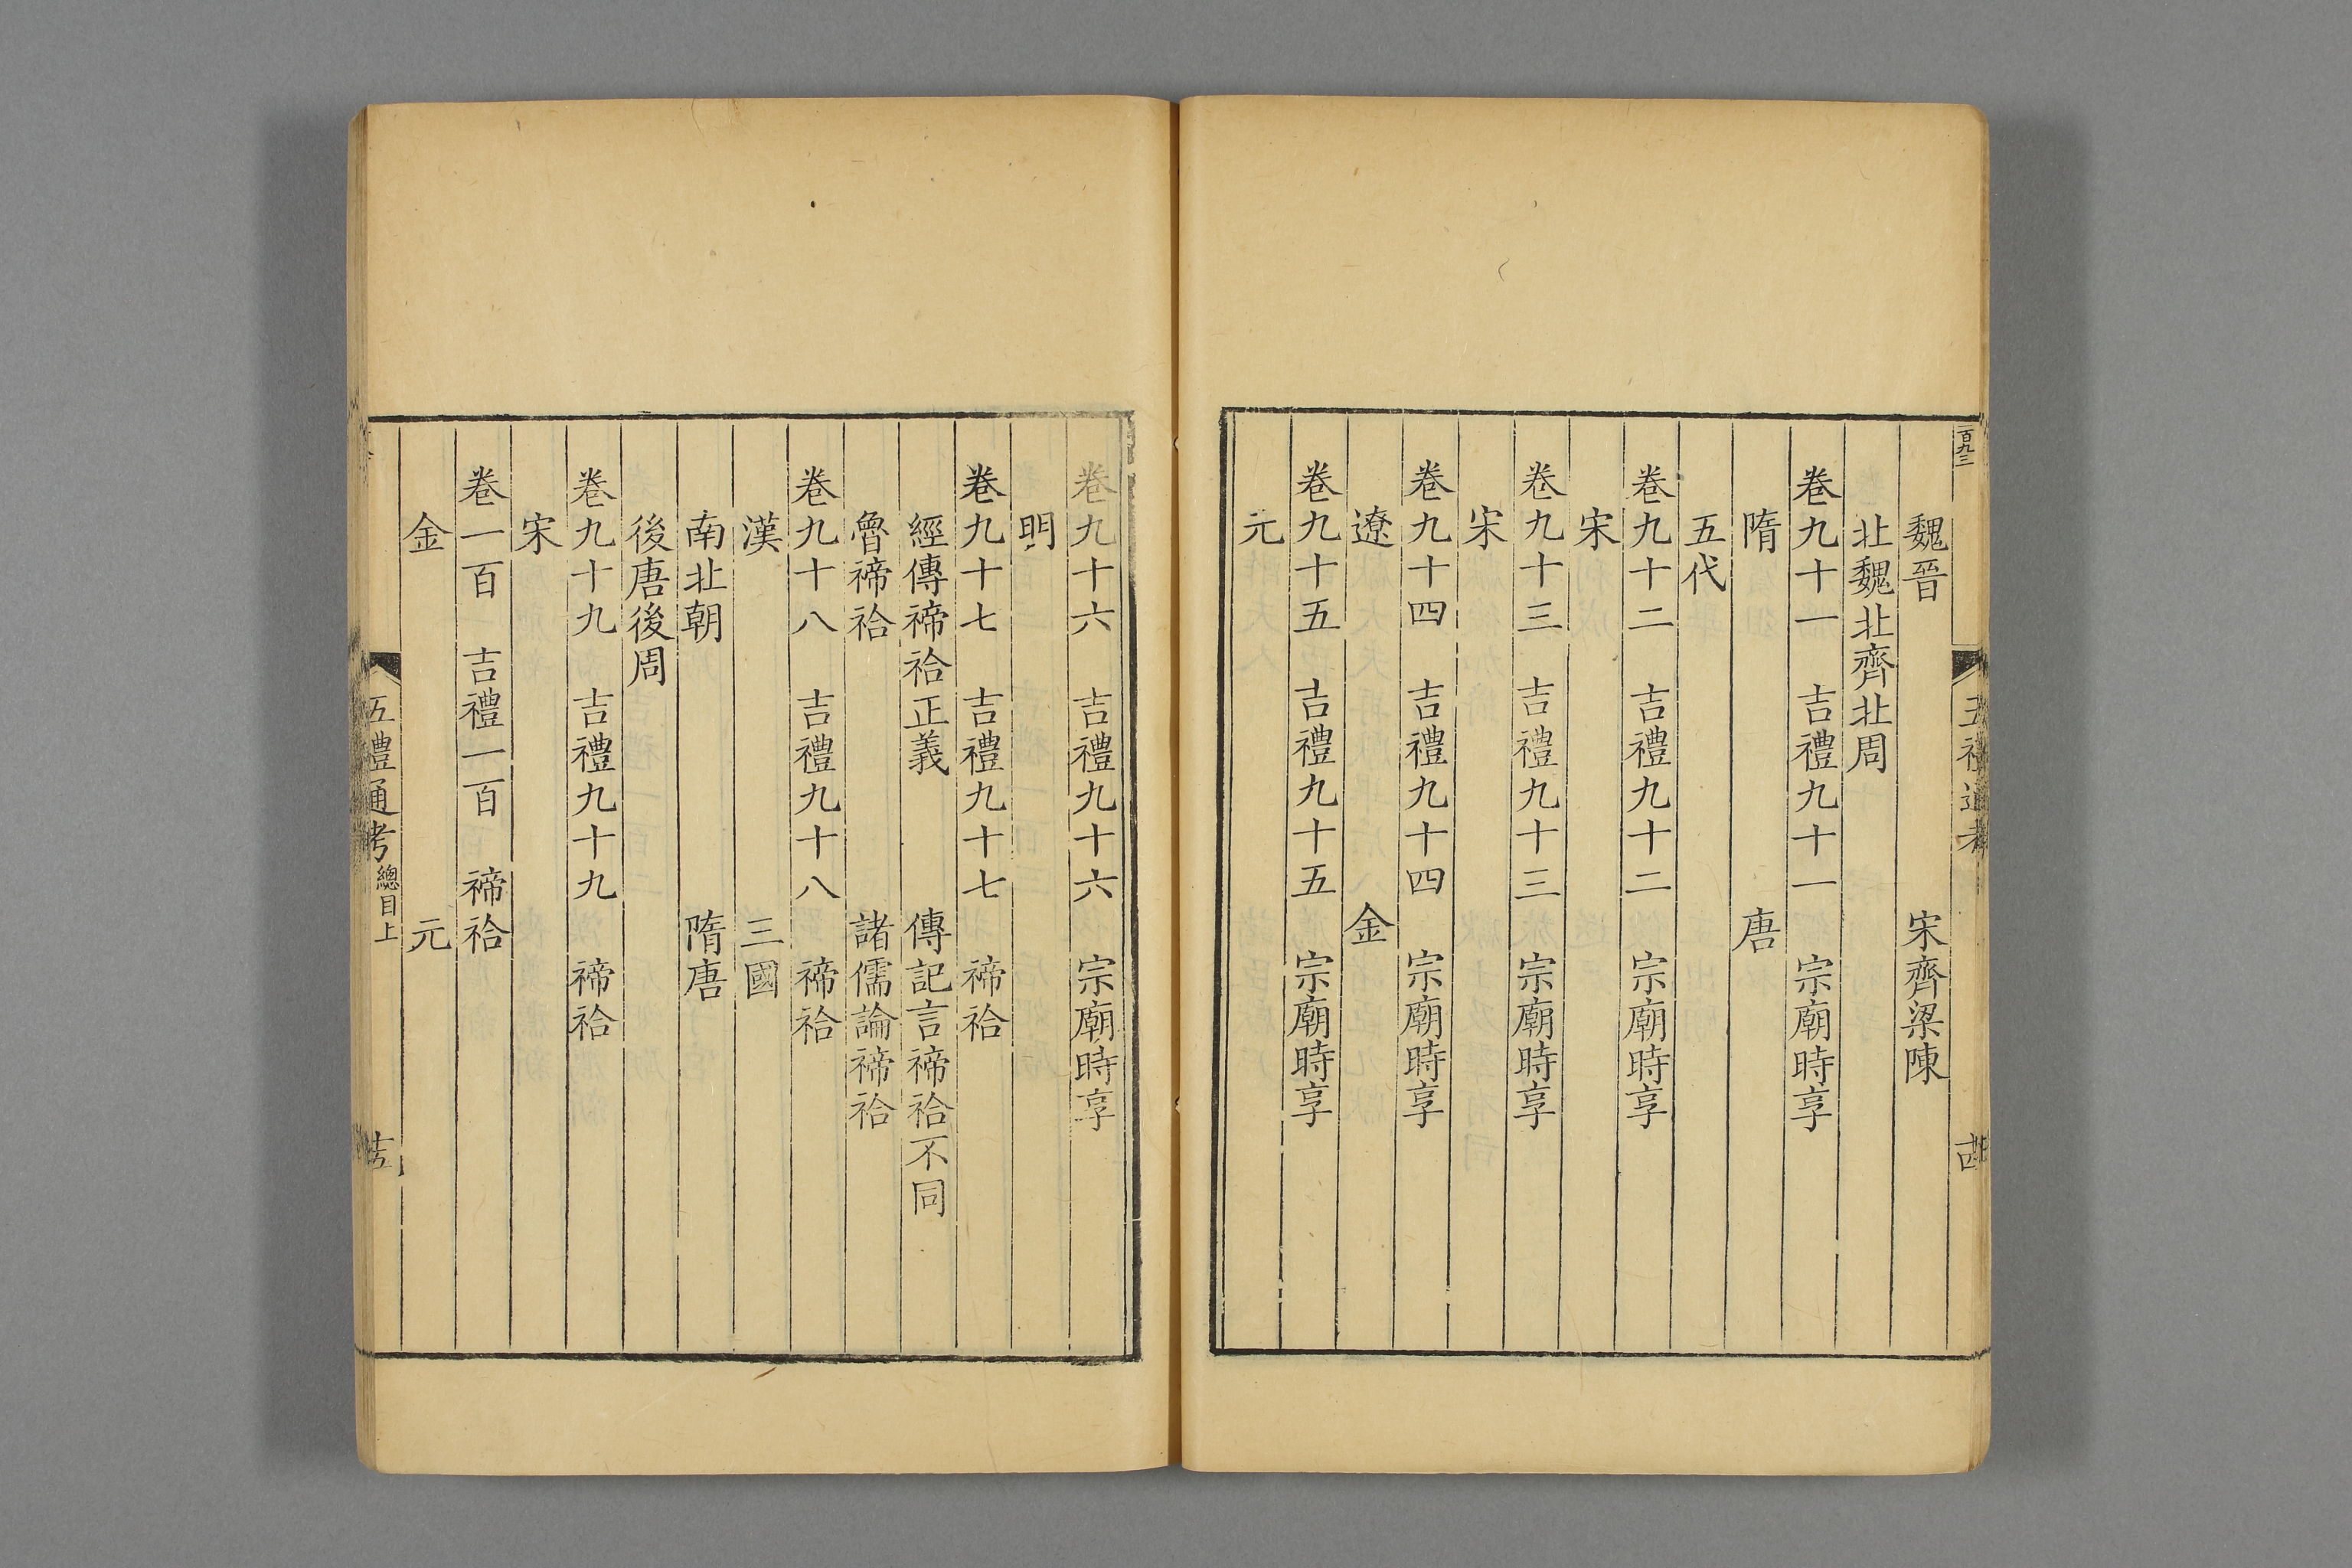 魏晉　宋齊梁陳
北魏北齊北周
卷九十一　吉禮九十一　宗廟時享
隋　唐
五代
卷九十二　吉禮九十二　宗廟時享
宋
卷九十三　吉禮九十三　宗廟時享
宋
卷九十四　吉禮九十四　宗廟時享
遼　金
卷九十五　吉禮九十五　宗廟時享
元
卷九十六　吉禮九十六　宗廟時享
明
卷九十七　吉禮九十七　禘祫
經傳禘祫正義　傳記言禘祫不同
魯禘祫　諸儒論禘祫
卷九十八　吉禮九十八　禘祫
漢　三國
南北朝　隋唐
後唐後周
卷九十九　吉禮九十九　禘祫
宋
卷一百　吉禮一百　禘祫
金　元
五禮通考總目上